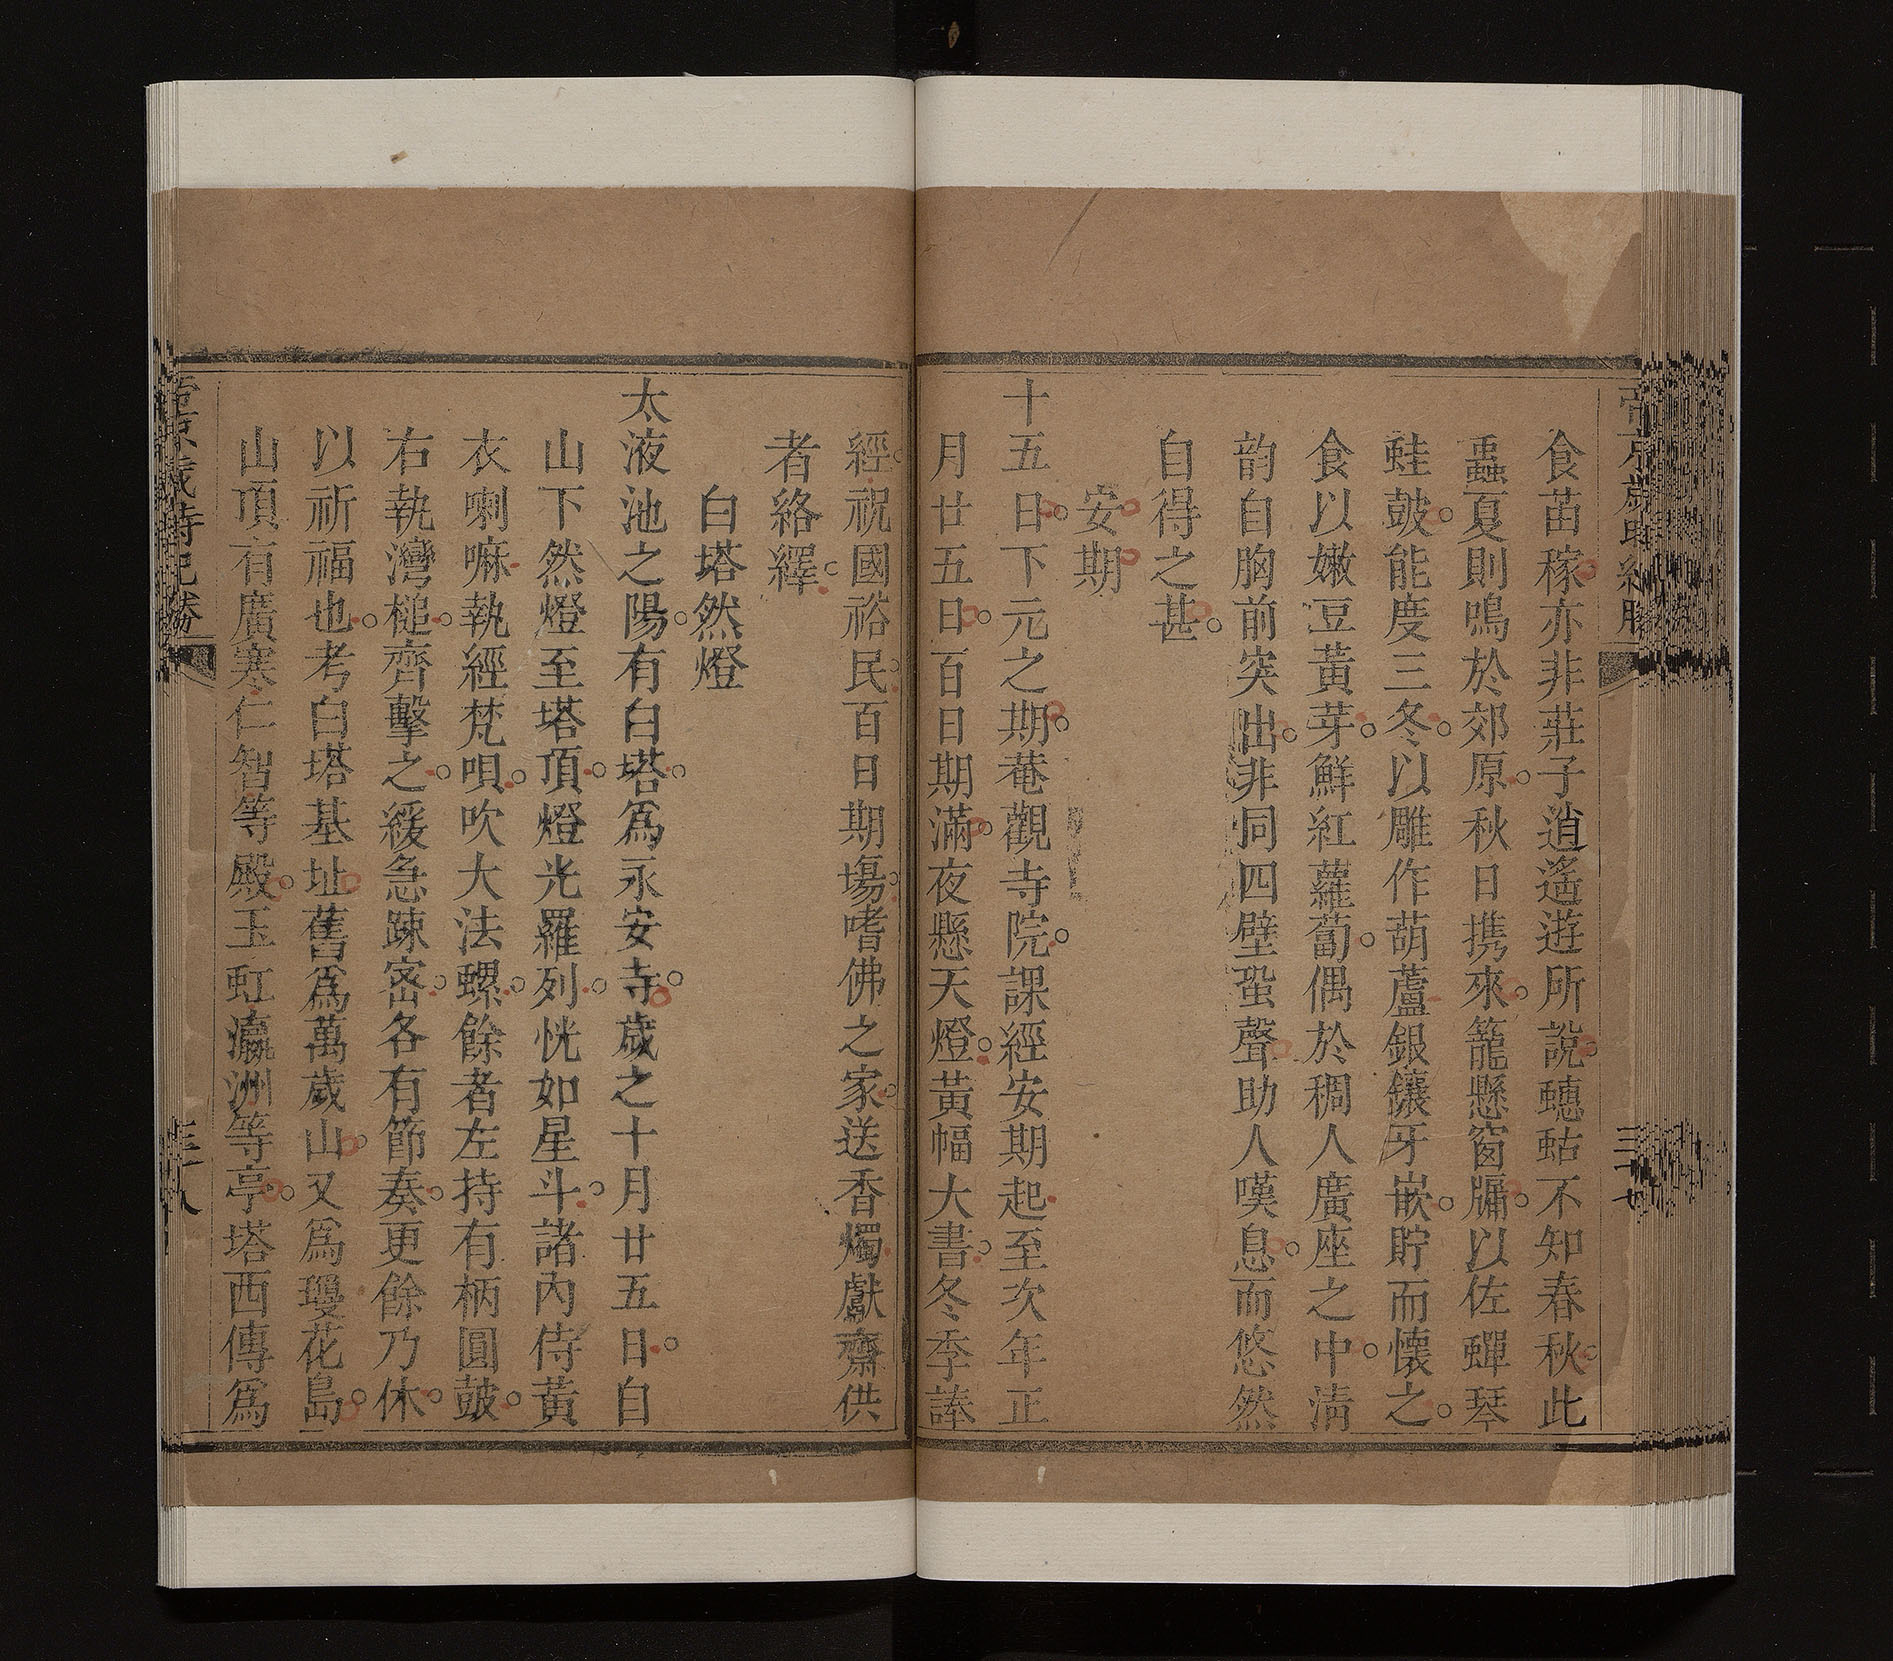 帝京歲時紀勝
三十七
食苗稼亦非莊子逍遙遊所說蟪蛄不知春秋此
蟲夏則鳴於郊原秋日携來籠懸窗牖以佐蟬琴
蛙皷能度三冬以雕作葫蘆銀鑲牙嵌貯而懷之
食以嫩豆黃芽鮮紅蘿蔔偶於稠人廣座之中清
韵自胸前突出非同四壁蛩聲助人嘆息而悠然
自得之甚
安期
十五日下元之期菴觀寺院課經安期起至次年正
月廿五日百日期滿夜懸天燈黃幅大書冬季諱
經祝國裕民百日期塲嗜佛之家送香燭獻齋供
者絡繹
白塔然燈
太液池之陽有白塔爲永安寺歲之十月廿五日自
山下然燈至塔頂燈光羅列恍如星斗諸內侍黃
衣喇嘛執經梵唄吹大法螺餘者左持有柄圓皷
右執灣槌齊擊之緩急踈宻各有節奏更餘乃休
以祈福也考白塔基址舊爲萬歲山又爲瓊花島
山頂有廣寒仁智等殿玉虹瀛洲等亭塔西傳爲
帝京歲時紀勝